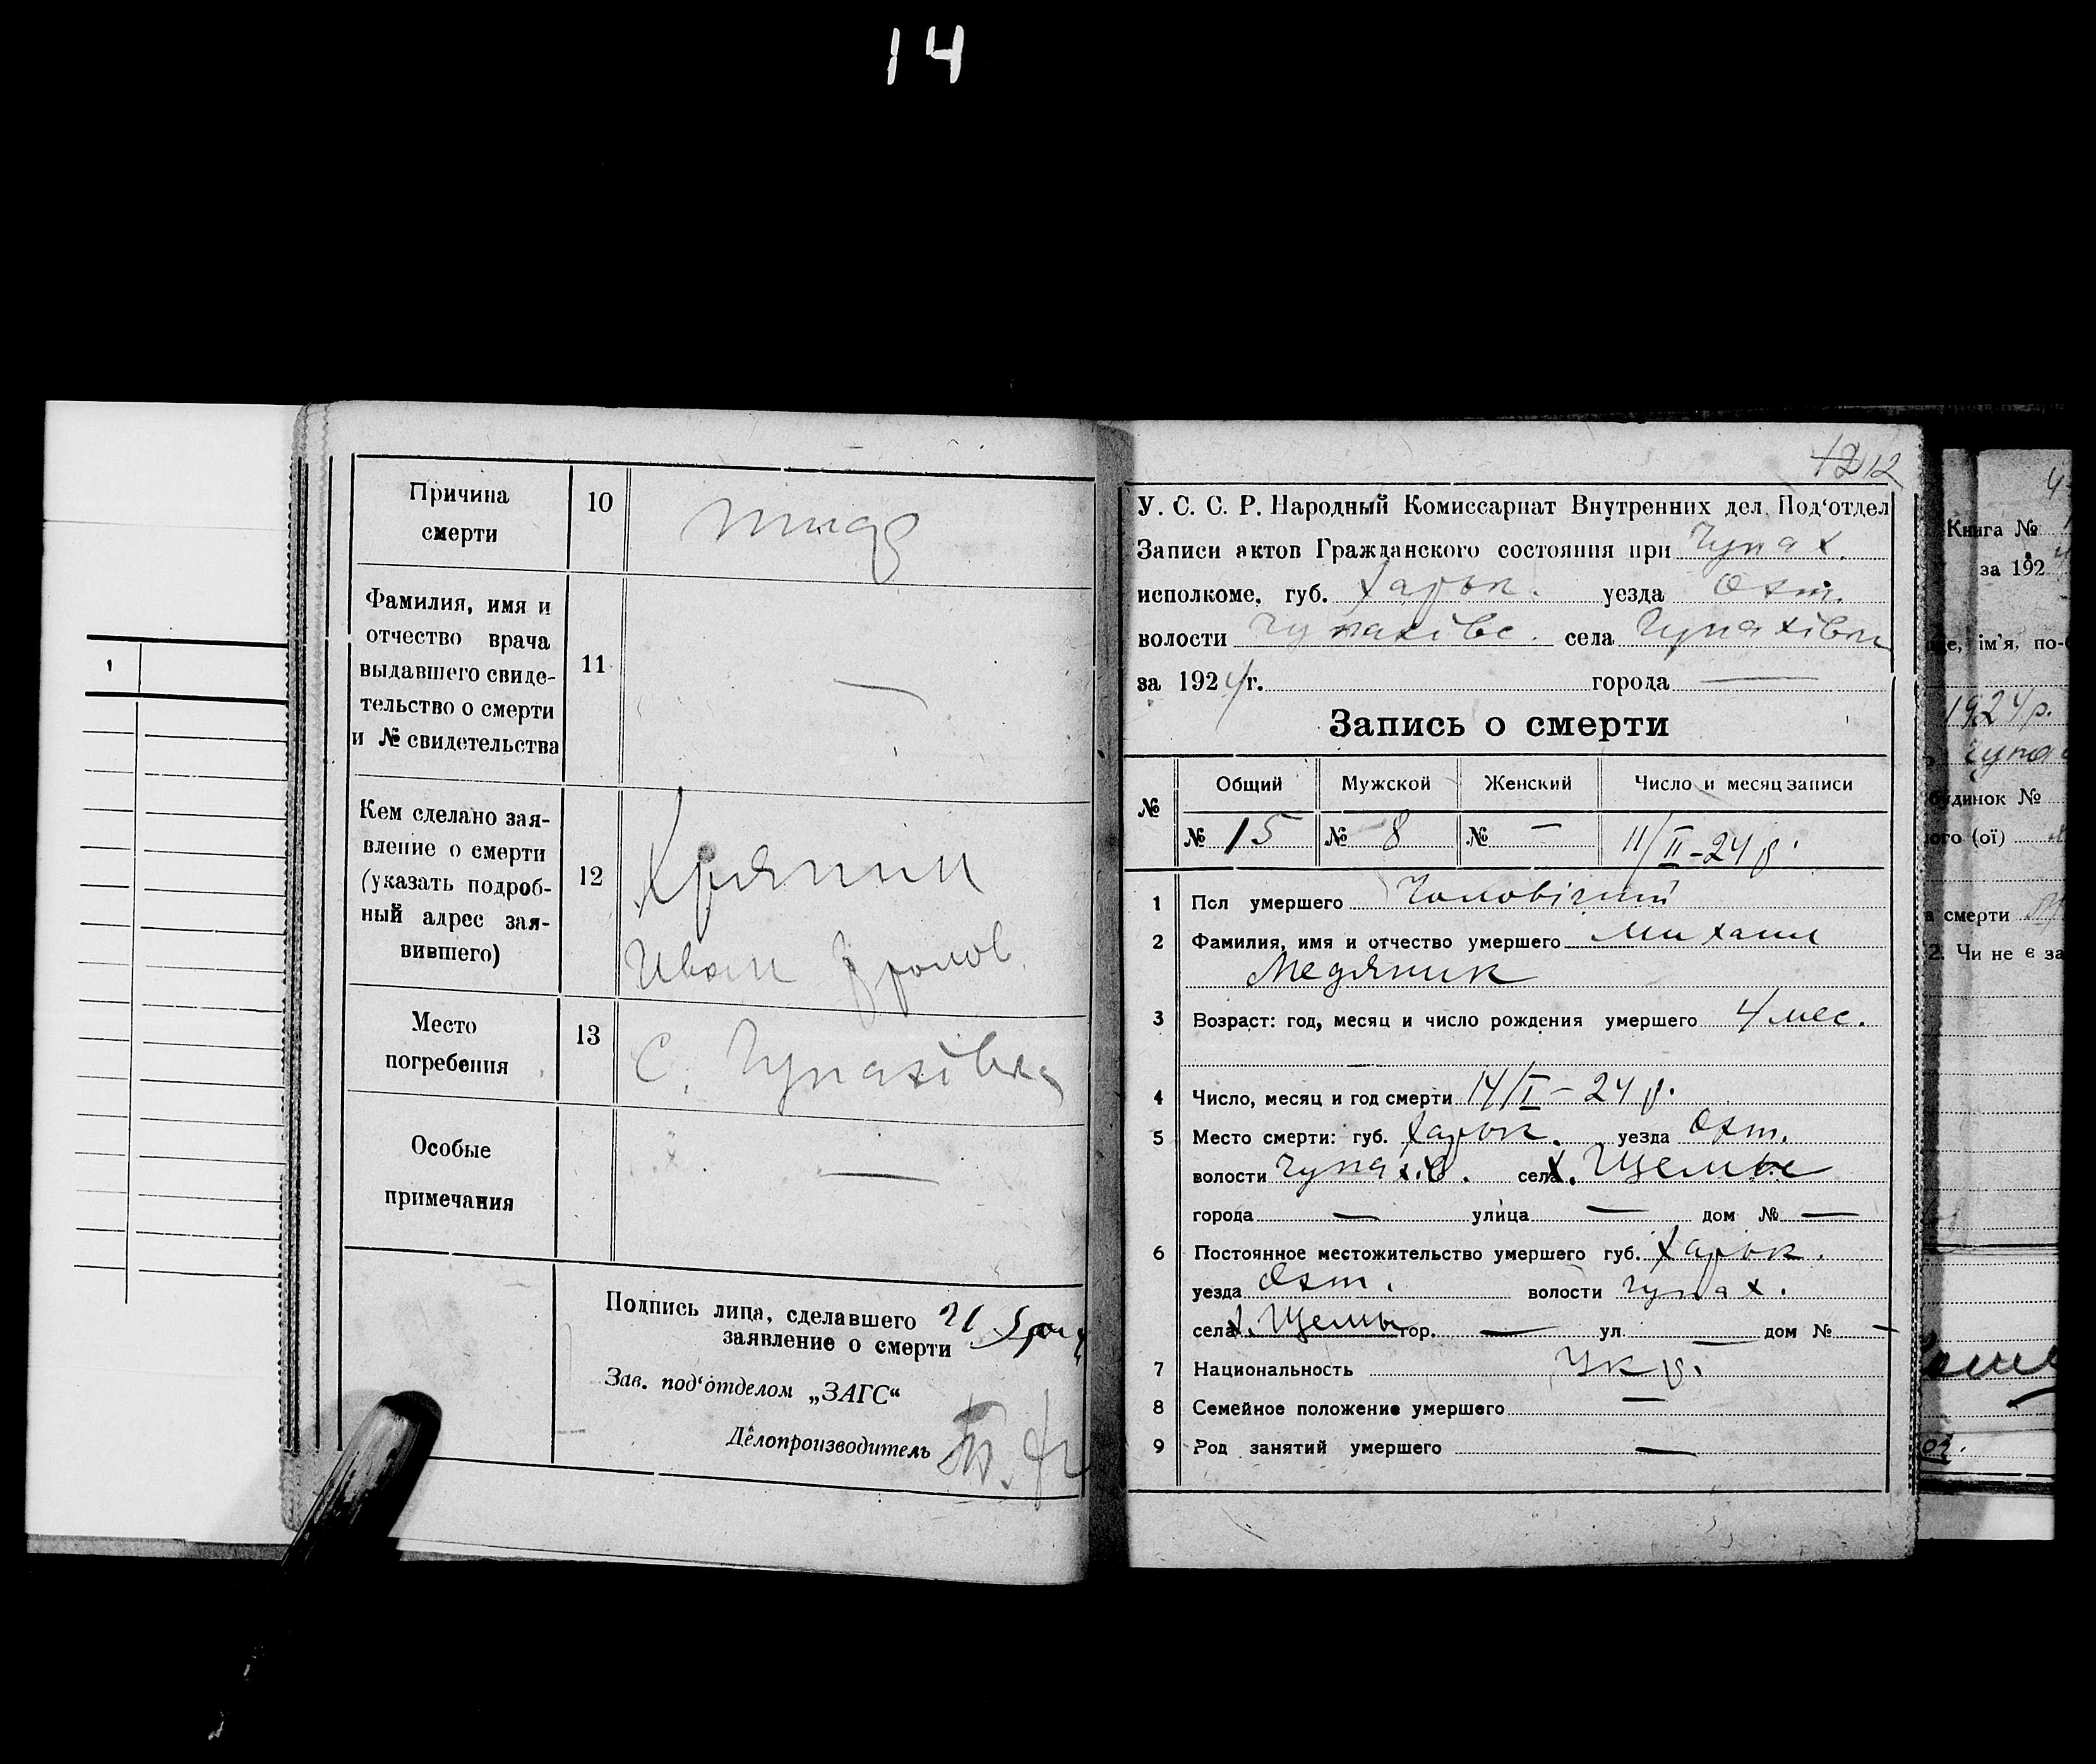 14
1
Причина
смерти
10
Фамилия, имя и
отчество врача
выдавшего свиде-
тельство о смерти
и № свидетельства
11
—
Кем сделано зая-
вление о смерти
(указать подроб-
ный адрес зая-
вившего)
12
Иван
Место
погребения
13
С. Чупахівка
Особые
примечания
—
Подпись лица, сделавшего
заявление о смерти
Зав. под‘отделом „ЗАГС“
Делопроизводитель
12 12
У. С. С. Р. Народный Комиссариат Внутренних дел. Под‘отдел
Записи актов Гражданского состояния при Чупах.
исполкоме, губ. Харьк. уезда Охт.
волости Чупахівс. села Чупахівки
за 1924 г. города —
Запись о смерти
№ Общий Мужской Женский Число и месяц записи
№ 15 № 8 № — 11/II-24 р.
1 Пол умершего Чоловічий
2 Фамилия, имя и отчество умершего Михаил
Медяник
3 Возраст: год, месяц и число рождения умершего 4 мес.
4 Число, месяц и год смерти 14/I-24 р.
5 Место смерти: губ. Харьк. уезда Охт.
волости Чупахів. села х.
города — улица — дом № —
6 Постоянное местожительство умершего губ. Харьк.
уезда Охт. волости Чупах.
села х. гор. — ул. — дом № —
7 Национальность Укр.
8 Семейное положение умершего —
9 Род занятий умершего —
Книга №
за 192
ім’я, по-
1924 р.
будинок №
ого (ої)
смерти
2. Чи не є за